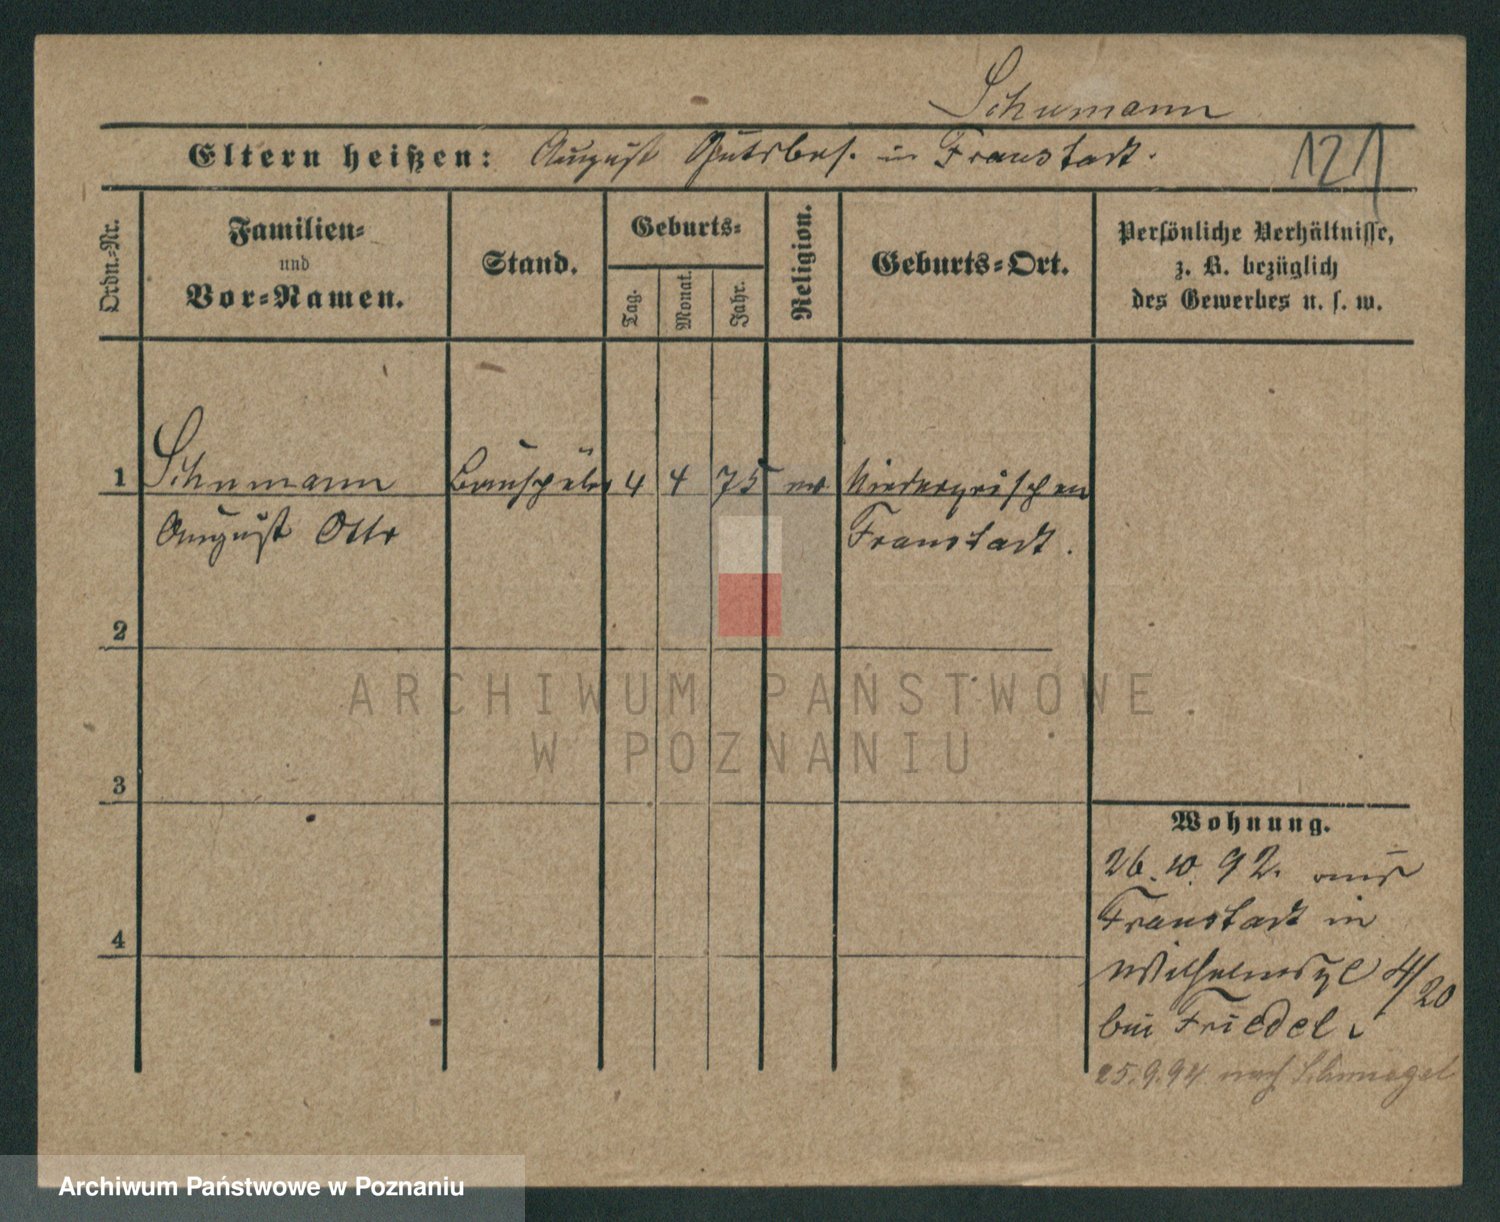 Schumann
Eltern heißen: August Gutsbes. in Fraustadt.
121
Ordn.-Nr.
Familien-
und
Vor-Namen.
Stand.
Geburts-
Tag.
Monat.
Jahr.
Religion.
Geburts-Ort.
Persönliche Verhältnisse,
z. B. bezüglich
des Gewerbes u. s. w.
1 Schumann Bauschüler 4 4 75 ev Niederpritschen
August Otto Fraustadt.
2
3
4
ARCHIWUM PAŃSTWOWE
W POZNANIU
Wohnung.
26. 10. 92. aus
Fraustadt in
Wilhelmspl 4/20
bei Friedel.
25.9.94 nach Schmiegel
Archiwum Państwowe w Poznaniu